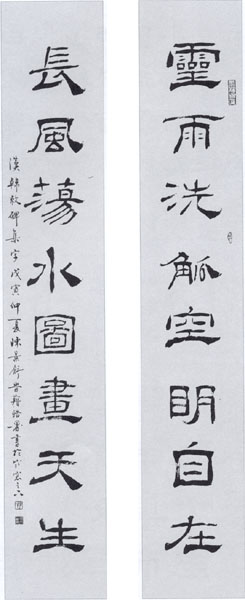 靈雨洗觚空明自在
長風蕩水圖畫天生
漢韓敕碑集字戊寅仲夏陳景舒書於